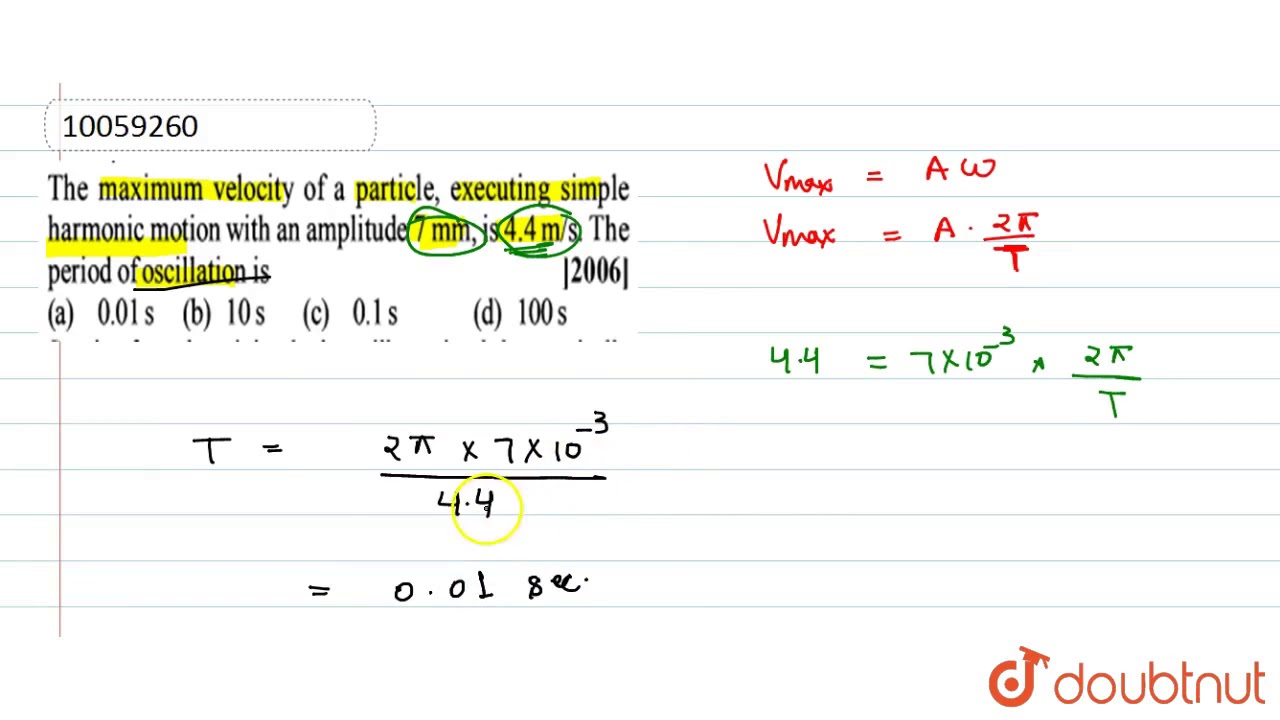 10059260
The maximum velocity of a particle, executing simple
harmonic motion with an amplitude 7 mm, is 4.4 m/s. The
period of oscillation is [2006]
(a) 0.01 s (b) 10 s (c) 0.1 s (d) 100 s
Vmax = Aω
Vmax = A · 2π/T
4.4 = 7×10⁻³ × 2π/T
T = 2π × 7×10⁻³
4.4
= 0.01 sec.
doubtnut